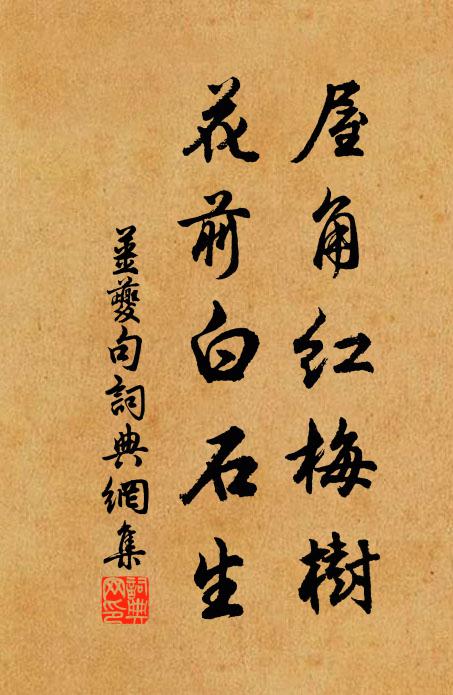 屋角紅梅樹
花前白石生
姜夔句詞典網集
詞典網印